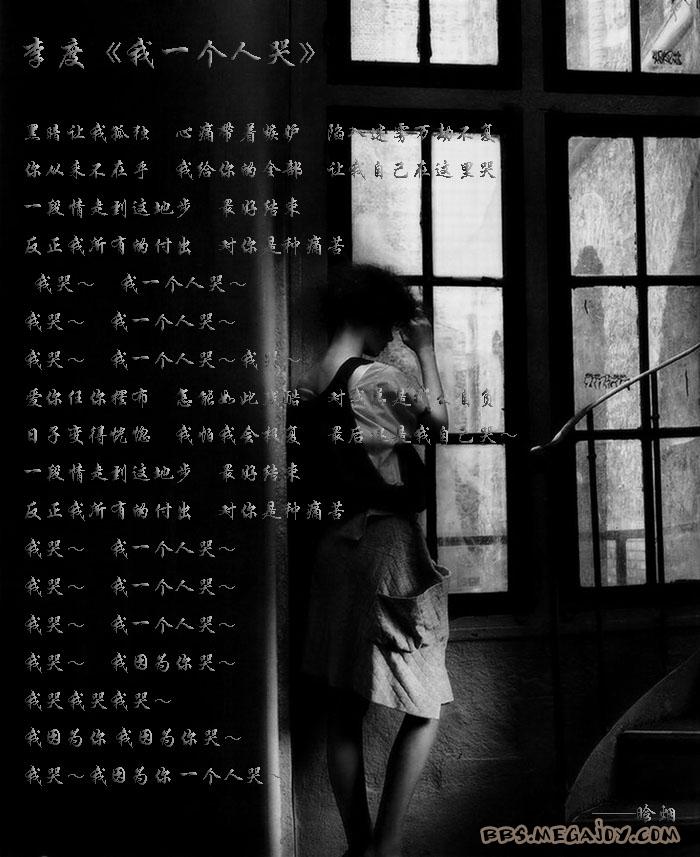 李度《我一个人哭》
黑暗让我孤独 心痛带着嫉妒 陷入迷雾万劫不复
你从来不在乎 我给你的全部 让我自己在这里哭
一段情走到这地步 最好结束
反正我所有的付出 对你是种痛苦
我哭～ 我一个人哭～
我哭～ 我一个人哭～
我哭～ 我一个人哭～我哭～
爱你任你摆布 怎能如此 酷 对
日子变得恍惚 我怕我会 复 最后 是我自己哭～
一段情走到这地步 最好结束
反正我所有的付出 对你是种痛苦
我哭～ 我一个人哭～
我哭～ 我一个人哭～
我哭～ 我一个人哭～
我哭～ 我因为你哭～
我哭我哭我哭～
我因为你 我因为你哭～
我哭～我因为你 一个人哭～
BBS.MEGAJOY.COM